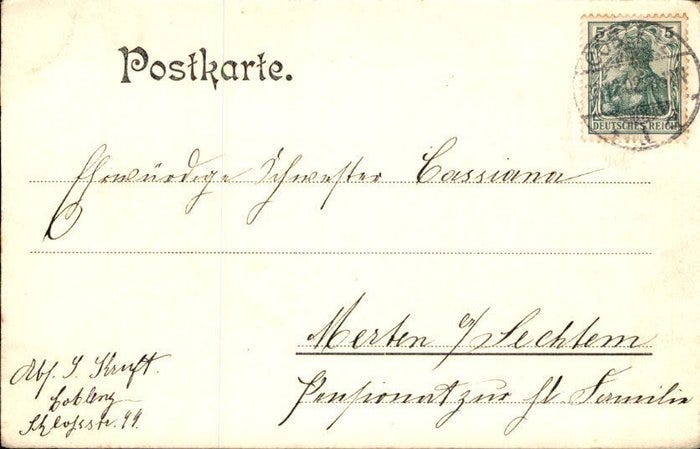 Postkarte.
5 5
DEUTSCHES REICH
Ehrwürdige Schwester Cassiana
Merten b/ Sechtem
Pensionat zur hl. Familie
Abs. J. Kruft.
Coblenz
Schlossstr. 44.